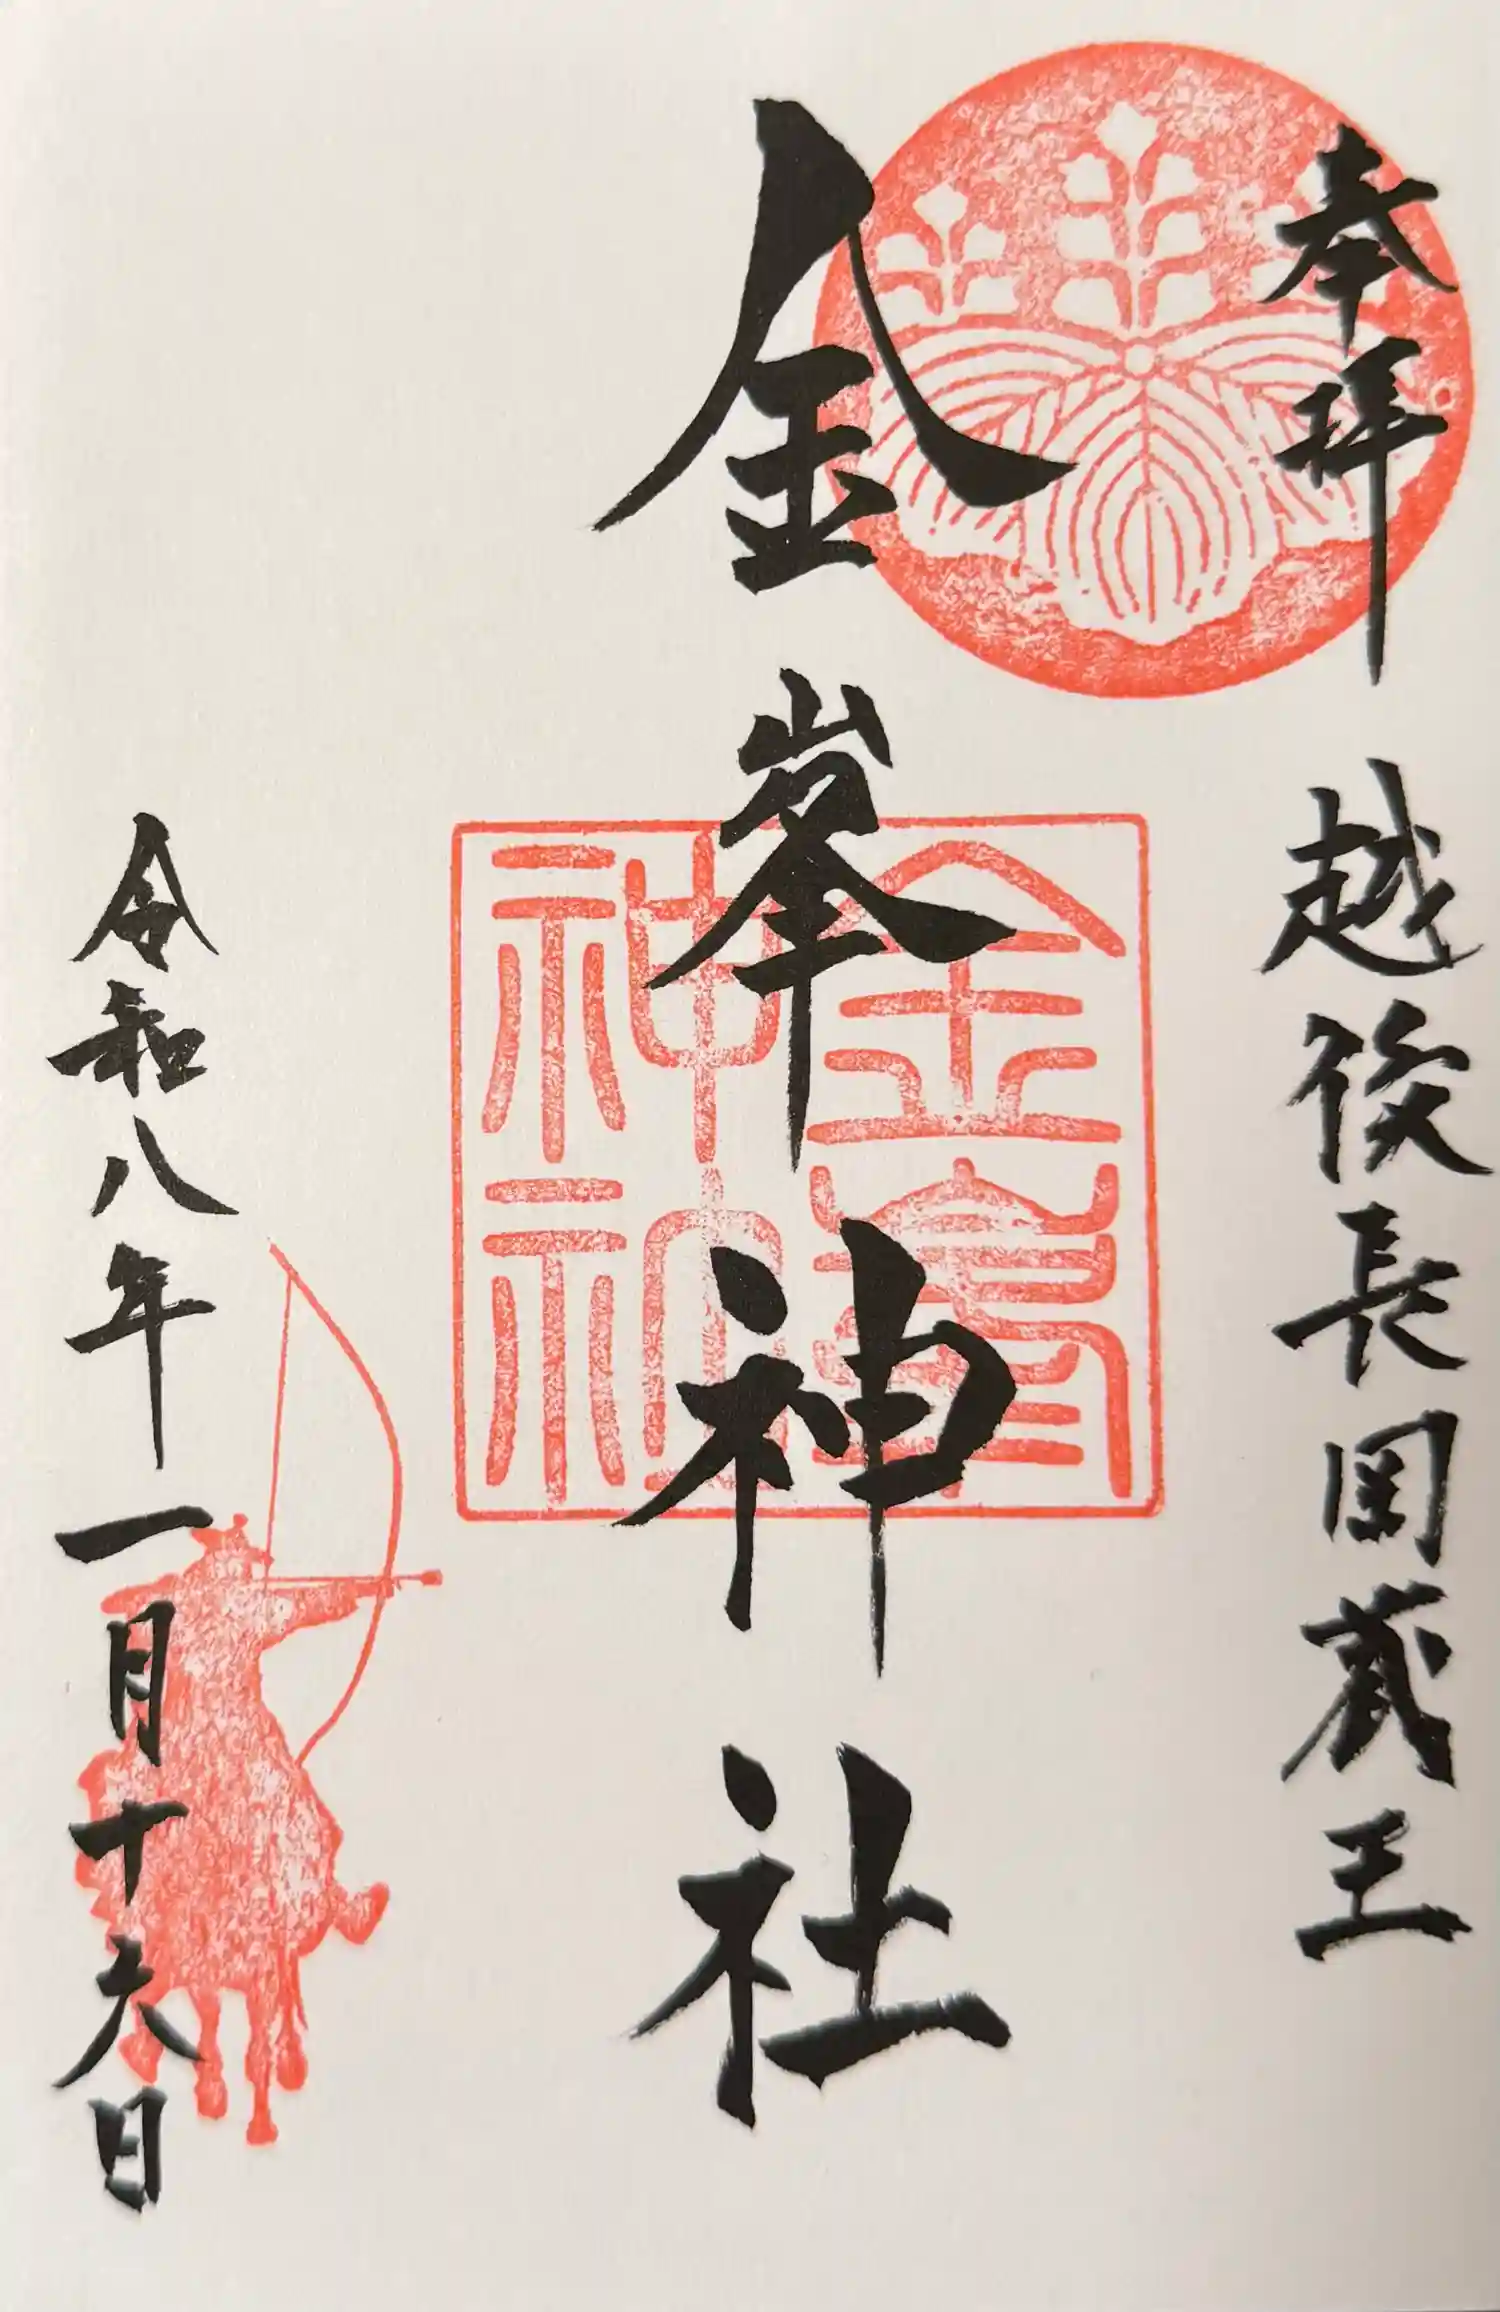 奉拝 越後長岡蔵王
金峯神社
令和八年一月十六日
金
神社